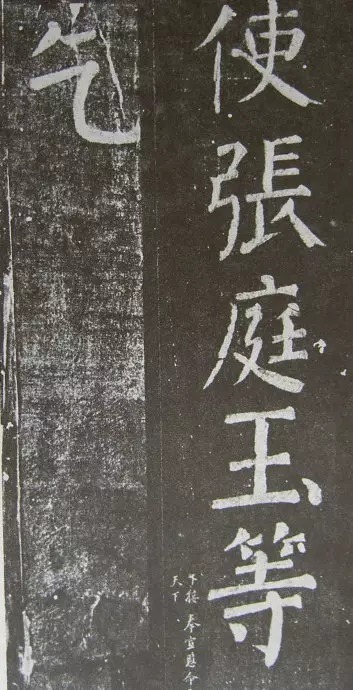 使張庭玉等
下接 奉宣慰令
天下
乞